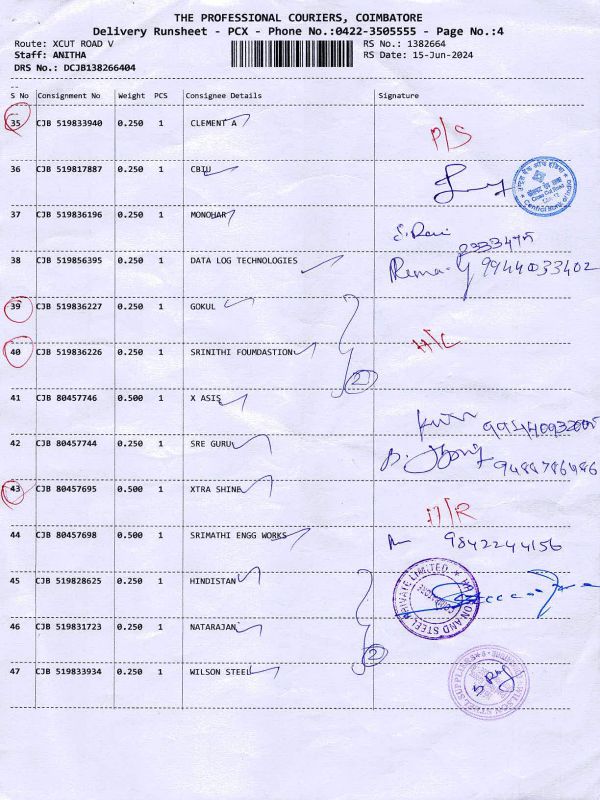 THE PROFESSIONAL COURIERS, COIMBATORE
Delivery Runsheet - PCX - Phone No.:0422-3505555 - Page No.:4
Route: XCUT ROAD V RS No.: 1382664
Staff: ANITHA RS Date: 15-Jun-2024
DRS No.: DCJB138266404
S No Consignment No Weight PCS Consignee Details Signature
35 CJB 519833940 0.250 1 CLEMENT A P/S
36 CJB 519817887 0.250 1 CBIU
37 CJB 519836196 0.250 1 MONOHAR
38 CJB 519856395 0.250 1 DATA LOG TECHNOLOGIES 9944033402
39 CJB 519836227 0.250 1 GOKUL
40 CJB 519836226 0.250 1 SRINITHI FOUMDASTION H/C
2
41 CJB 80457746 0.500 1 X ASIS
42 CJB 80457744 0.250 1 SRE GURU 9488786486
43 CJB 80457695 0.500 1 XTRA SHINE
44 CJB 80457698 0.500 1 SRIMATHI ENGG WORKS 9842244156
45 CJB 519828625 0.250 1 HINDISTAN
46 CJB 519831723 0.250 1 NATARAJAN
2
47 CJB 519833934 0.250 1 WILSON STEEL